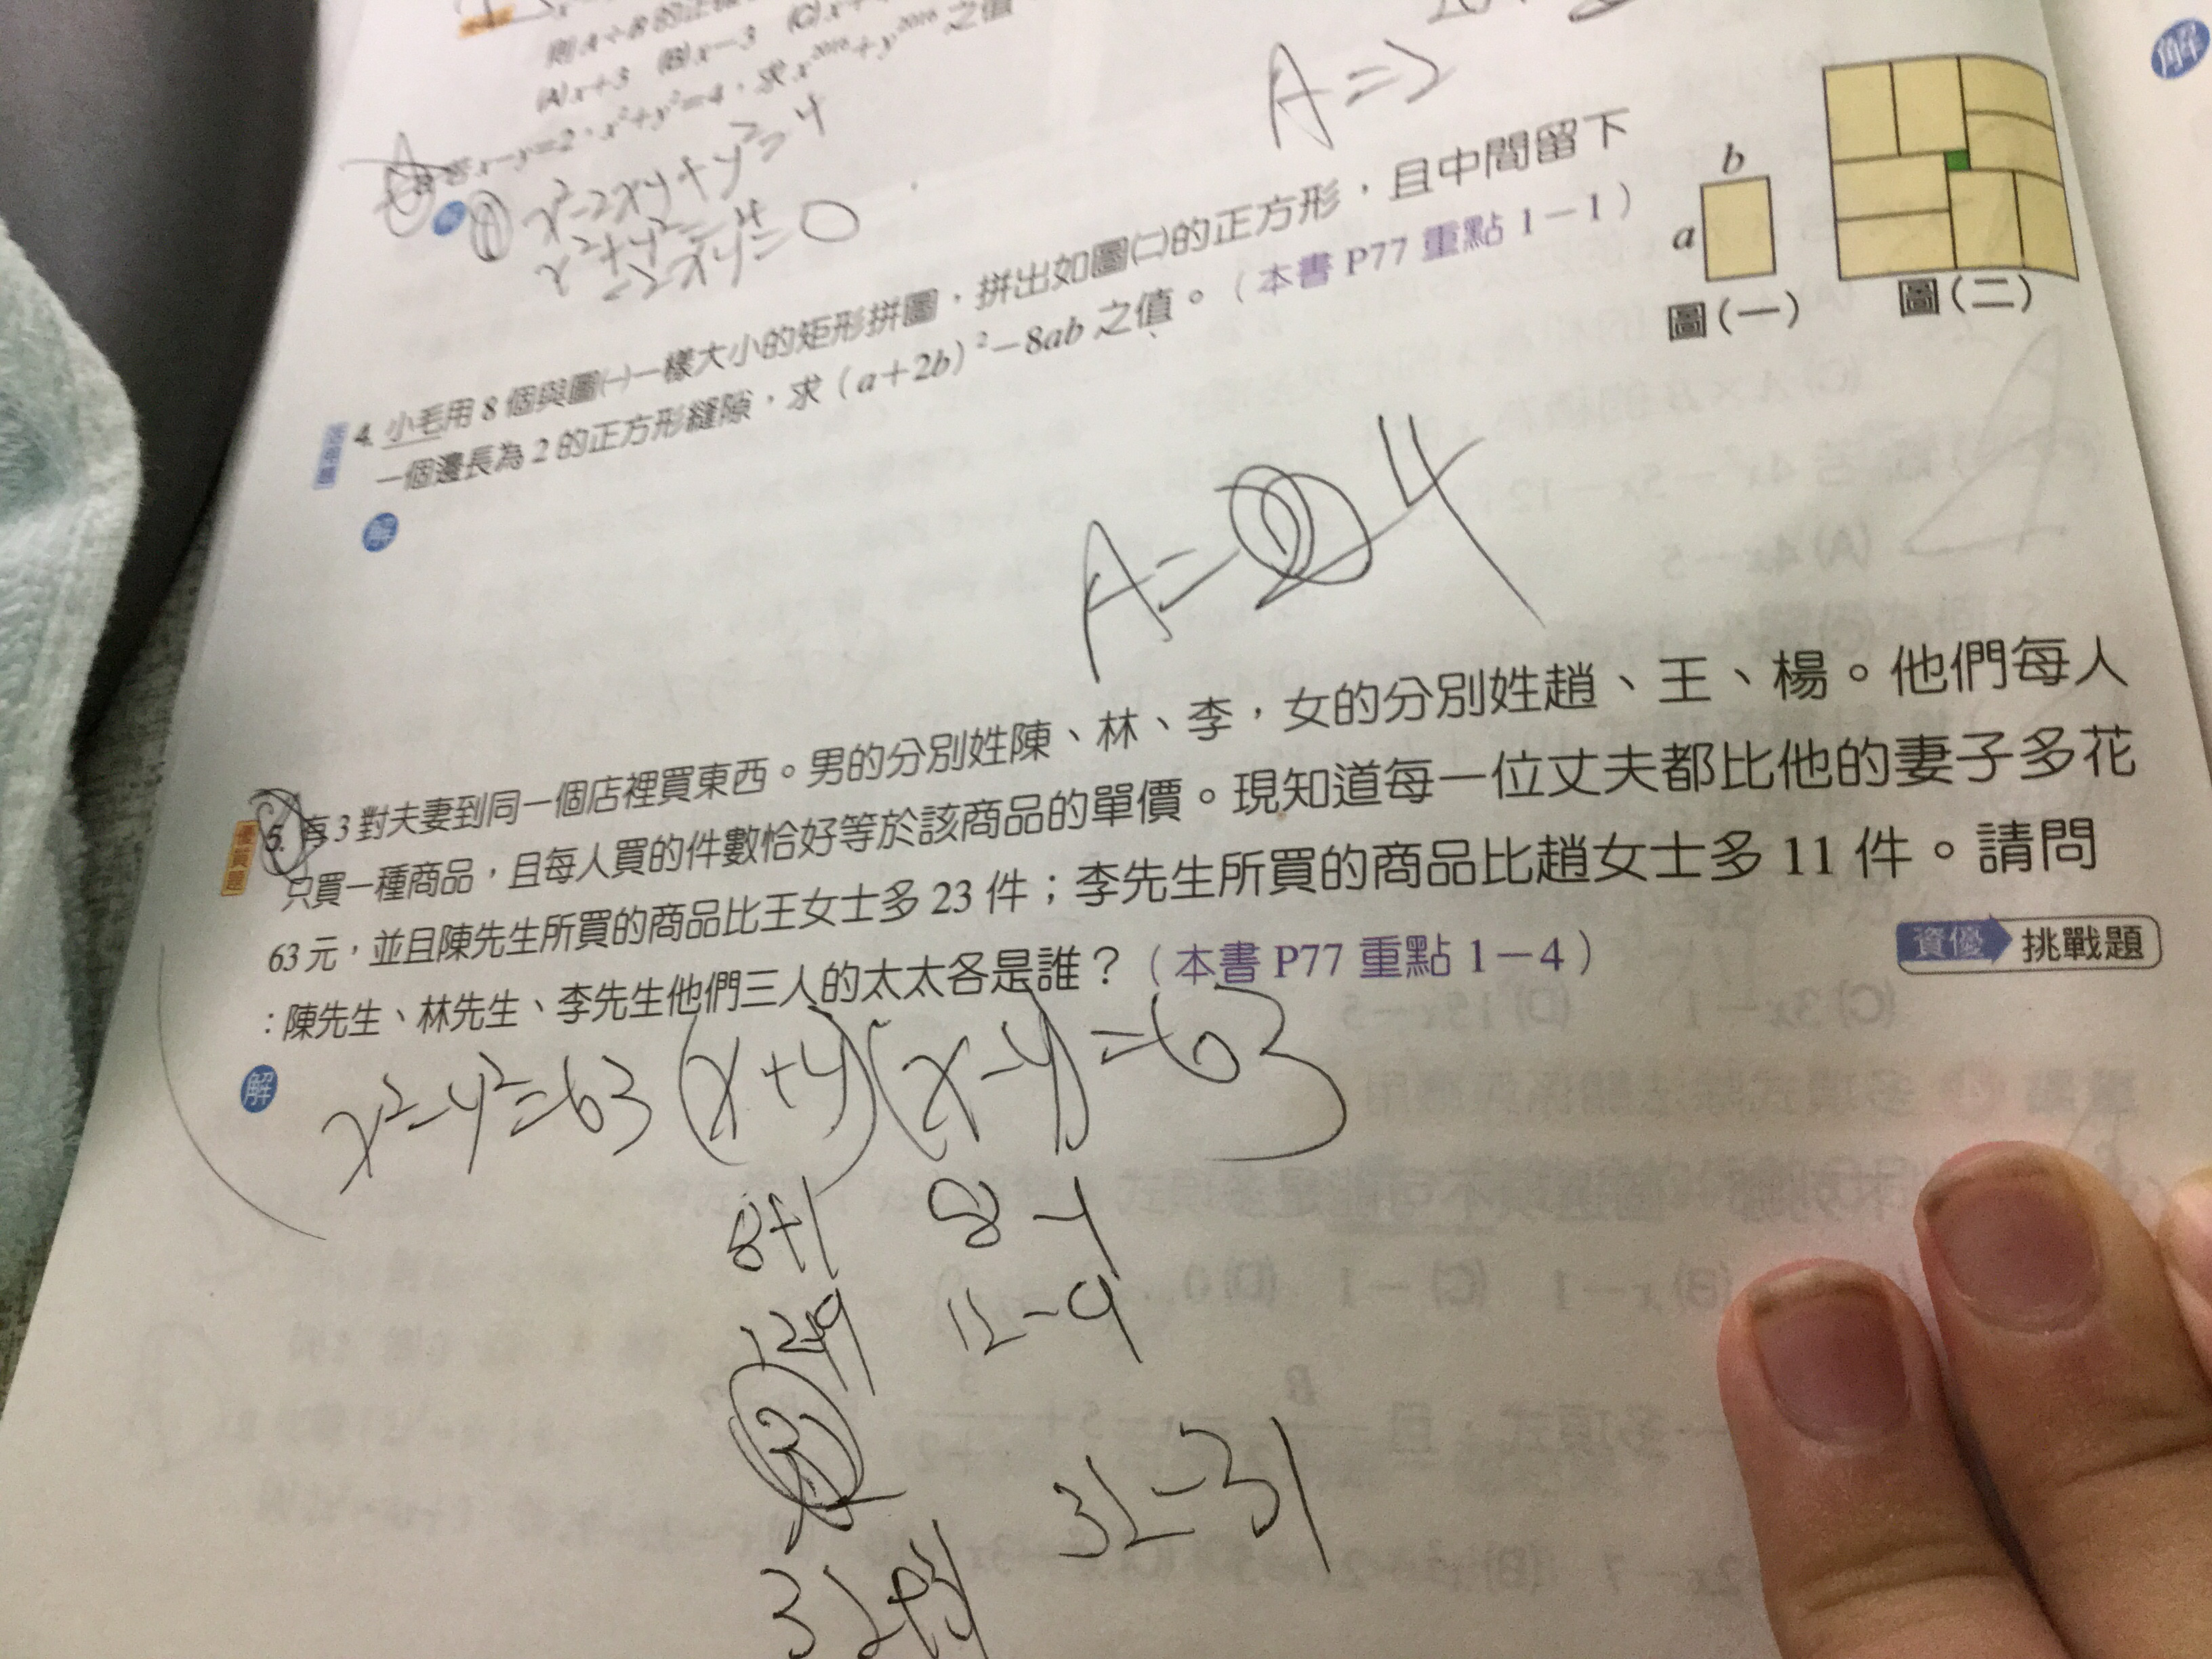 則 A÷B 的正
(A) x+3 (B) x-3 (C) x
若 x-y=2，x²+y²=4，求 x²⁰¹⁶+y²⁰¹⁶ 之值
x²-2xy+y²=4
x²+y²=4
-2xy=0
A=2
4. 小毛用 8 個與圖(一)一樣大小的矩形拼圖，拼出如圖(二)的正方形，且中間留下
一個邊長為 2 的正方形縫隙，求 (a+2b)²-8ab 之值。(本書 P77 重點 1-1)
b
a
圖(一)
圖(二)
解
A=4
優質題
5. 有 3 對夫妻到同一個店裡買東西。男的分別姓陳、林、李，女的分別姓趙、王、楊。他們每人
只買一種商品，且每人買的件數恰好等於該商品的單價。現知道每一位丈夫都比他的妻子多花
63 元，並且陳先生所買的商品比王女士多 23 件；李先生所買的商品比趙女士多 11 件。請問
：陳先生、林先生、李先生他們三人的太太各是誰？(本書 P77 重點 1-4)
資優 挑戰題
解
x²-y²=63 (x+y)(x-y)=63
8+1 8-1
12+9 12-9
32+31 32-31
解